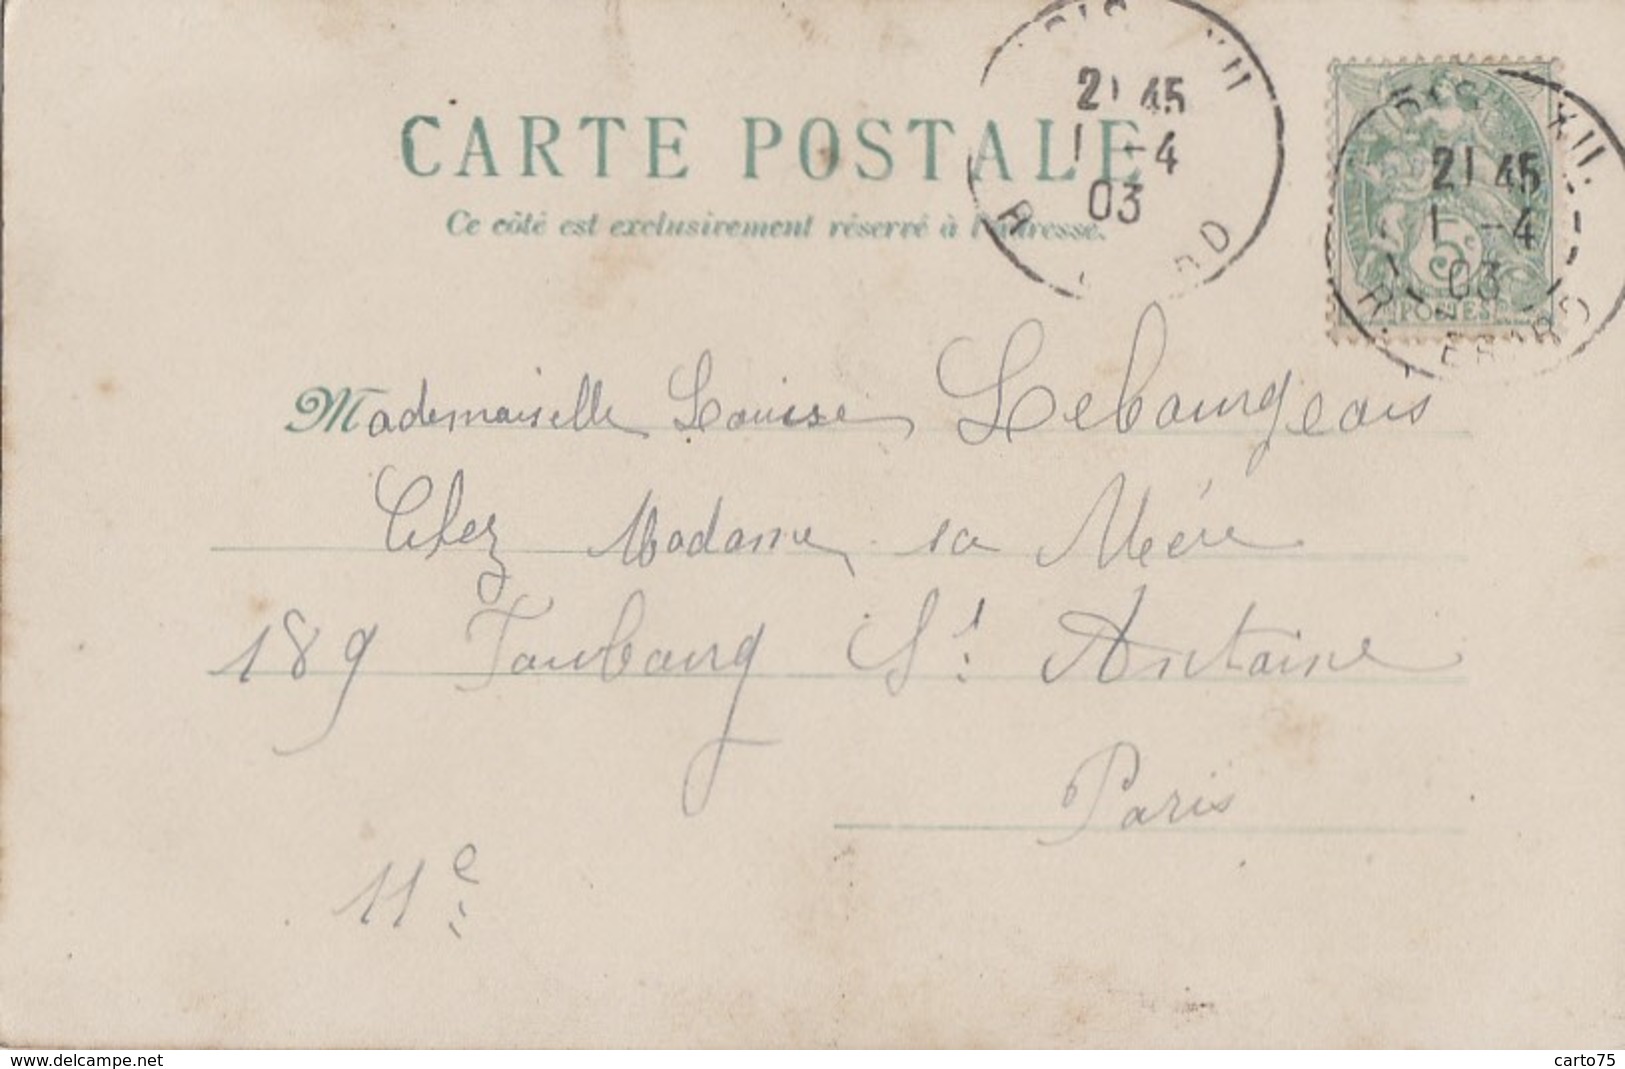 CARTE POSTALE
Ce côté est exclusivement réservé à l'adresse.
21 45
1 -4
03
XII
21 45
1 -4
03
5c
POSTES
Mademoiselle Louise Lebourgeois
Chez Madame sa Mère
189 Faubourg St Antoine
Paris
11e
www.delcampe.net
carto75